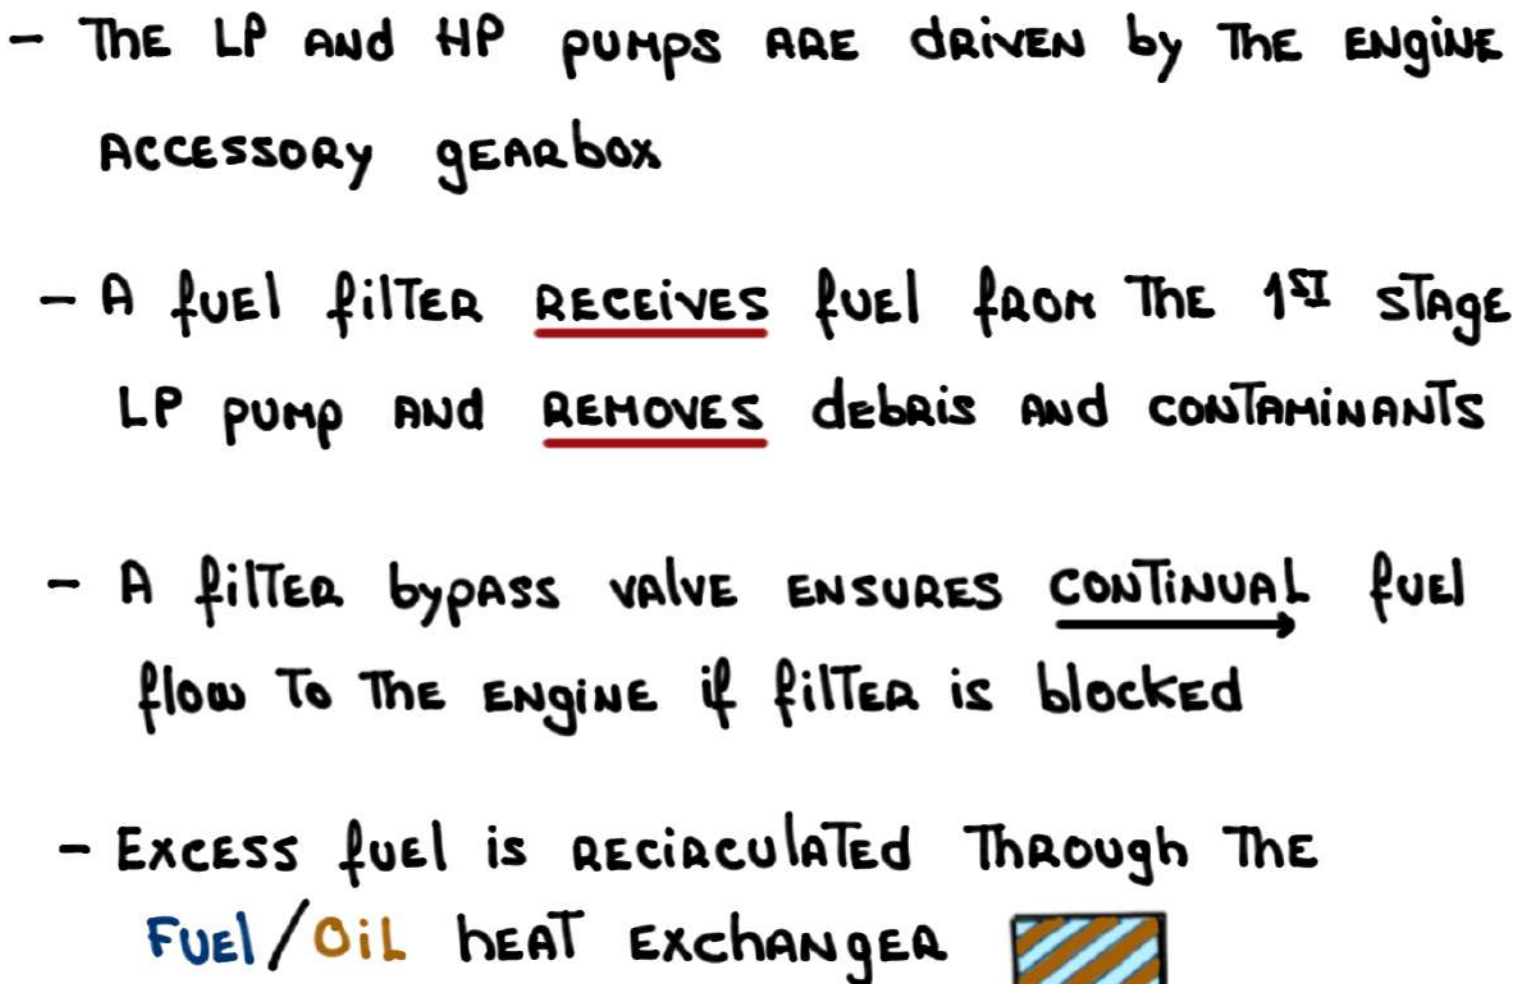 - THE LP AND HP PUMPS ARE dRiVEN by THE ENgiNE
ACCESSORY gEARbox
- A fUEl filTER RECEiVES fUEl fROM THE 1ST STAgE
LP pUMp AND REMOVES dEbRis AND CONTAMiNANTS
- A filTER bypASS VAlVE ENSURES CONTiNUAL fUEl
flow To THE ENgiNE if filTER is blockEd
- EXCESS fUEl is RECiRCUlATEd THROUgh THE
FUEl/OiL hEAT EXchANgER